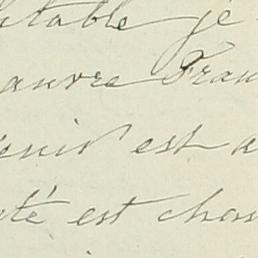 itable je
auvre Fran
enir est a
té est chos